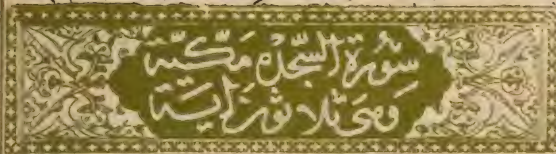 سورة السجدة مكية
وهى ثلاثون آية